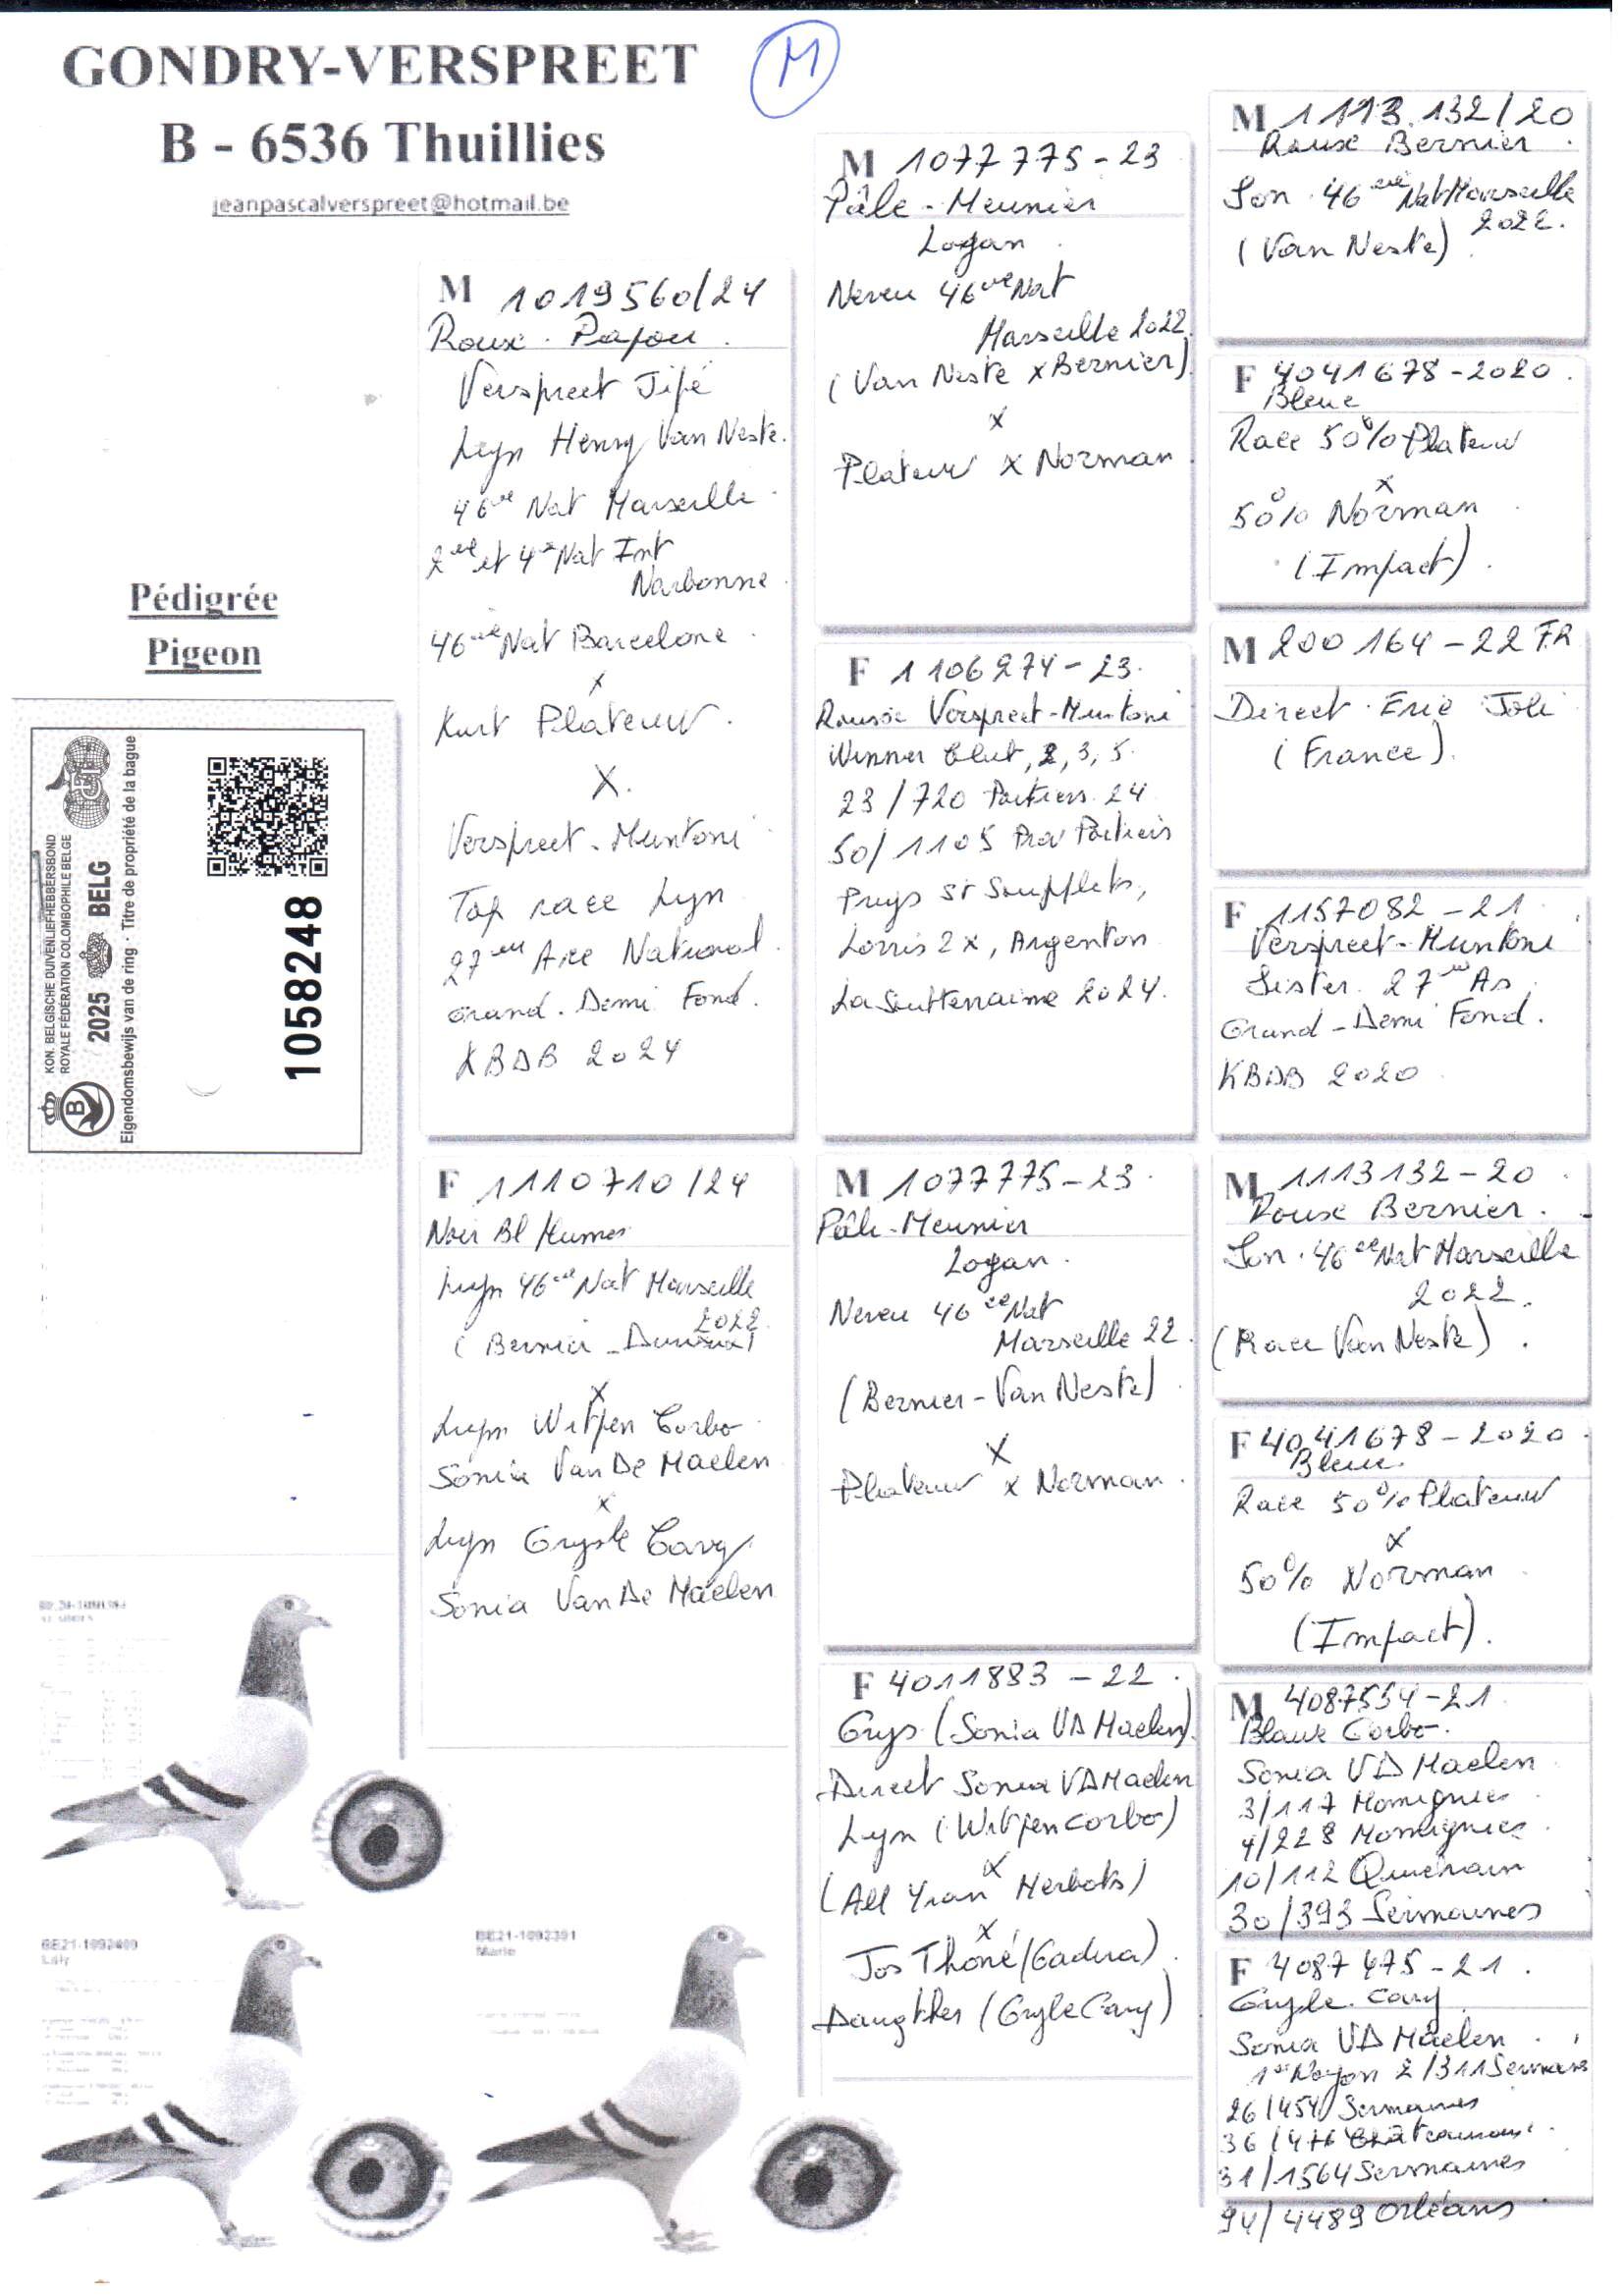 GONDRY-VERSPREET
B - 6536 Thuillies
jeanpascalverspreet@hotmail.be
M
Pédigrée
Pigeon
KON. BELGISCHE DUIVENLIEFHEBBERSBOND
ROYALE FÉDÉRATION COLOMBOPHILE BELGE
2025 BELG
Eigendomsbewijs van de ring · Titre de propriété de la bague
1058248
M 1019560/24
Roux . Papou .
Verspreet Jifé
Lyn Henry Van Neste.
46ème Nat Marseille
2ème et 4e Nat Int
Narbonne
46ème Nat Barcelone
x
Kurt Plateuw .
X.
Verspreet - Muntoni
Top race Lyn
27ème Ace National
Grand. Demi Fond.
KBDB 2024
F 1110710/24
Noir Bl Plumes
Lyn 46ème Nat Marseille
2022
( Bernier -
x
Lyn Witpen Corbo
Sonia Van De Maelen
x
Lyn Grysle Cavy
Sonia Van De Maelen
M 1077775-23
Pâle - Meunier
Logan
Neveu 46ème Nat
Marseille 2022
(Van Neste x Bernier)
x
Plateuw x Norman
F 1106274-23
Rousse Verspreet-Muntoni
Winner Club, 2, 3, 5.
23/720 Poitiers 24
50/1105 Prov Poitiers
Prys St Soupplets,
Lorris 2x, Argenton
La Soutteraine 2024.
M 1077775-23
Pâle-Meunier
Logan.
Neveu 46ème Nat
Marseille 22.
(Bernier-Van Neste)
X
Plateuw x Norman
F 4011883 - 22
Grys (Sonia VD Maelen)
Direct Sonia VD Maelen
Lyn (Witpen Corbo)
x
(All Yvan Herbots)
x
Jos Thoné (Gadura)
Daughter (Grysle Cavy)
M 1113.132/20
Roux Bernier .
Son 46ème Nat Marseille
2022.
(Van Neste)
F 4041678-2020
Bleue
Race 50% Plateuw
x
50% Norman
(Impact).
M 200164-22 FR
Direct Eric Joli
(France).
F 1157082-21
Verspreet-Muntoni
Sister 27ème As
Grand-Demi Fond.
KBDB 2020
M 1113132-20
Roux Bernier.
Son. 46ème Nat Marseille
2022.
(Race Van Neste) .
F 4041678-2020
Bleue.
Race 50% Plateuw
x
50% Norman
(Impact).
M 4087554-21
Blauw Corbo.
Sonia VD Maelen
3/117 Momignies
4/228 Momignies
10/112 Quievrain
30/393 Sermaises
F 4087475-21 .
Grysle. Cavy
Sonia VD Maelen
1er Noyon 2/311 Sermaises
26/454 Sermaises
36/476 Chateauroux
31/1564 Sermaises
94/4489 Orléans
BE21-1092409
Laly
BE21-1092391
Marie